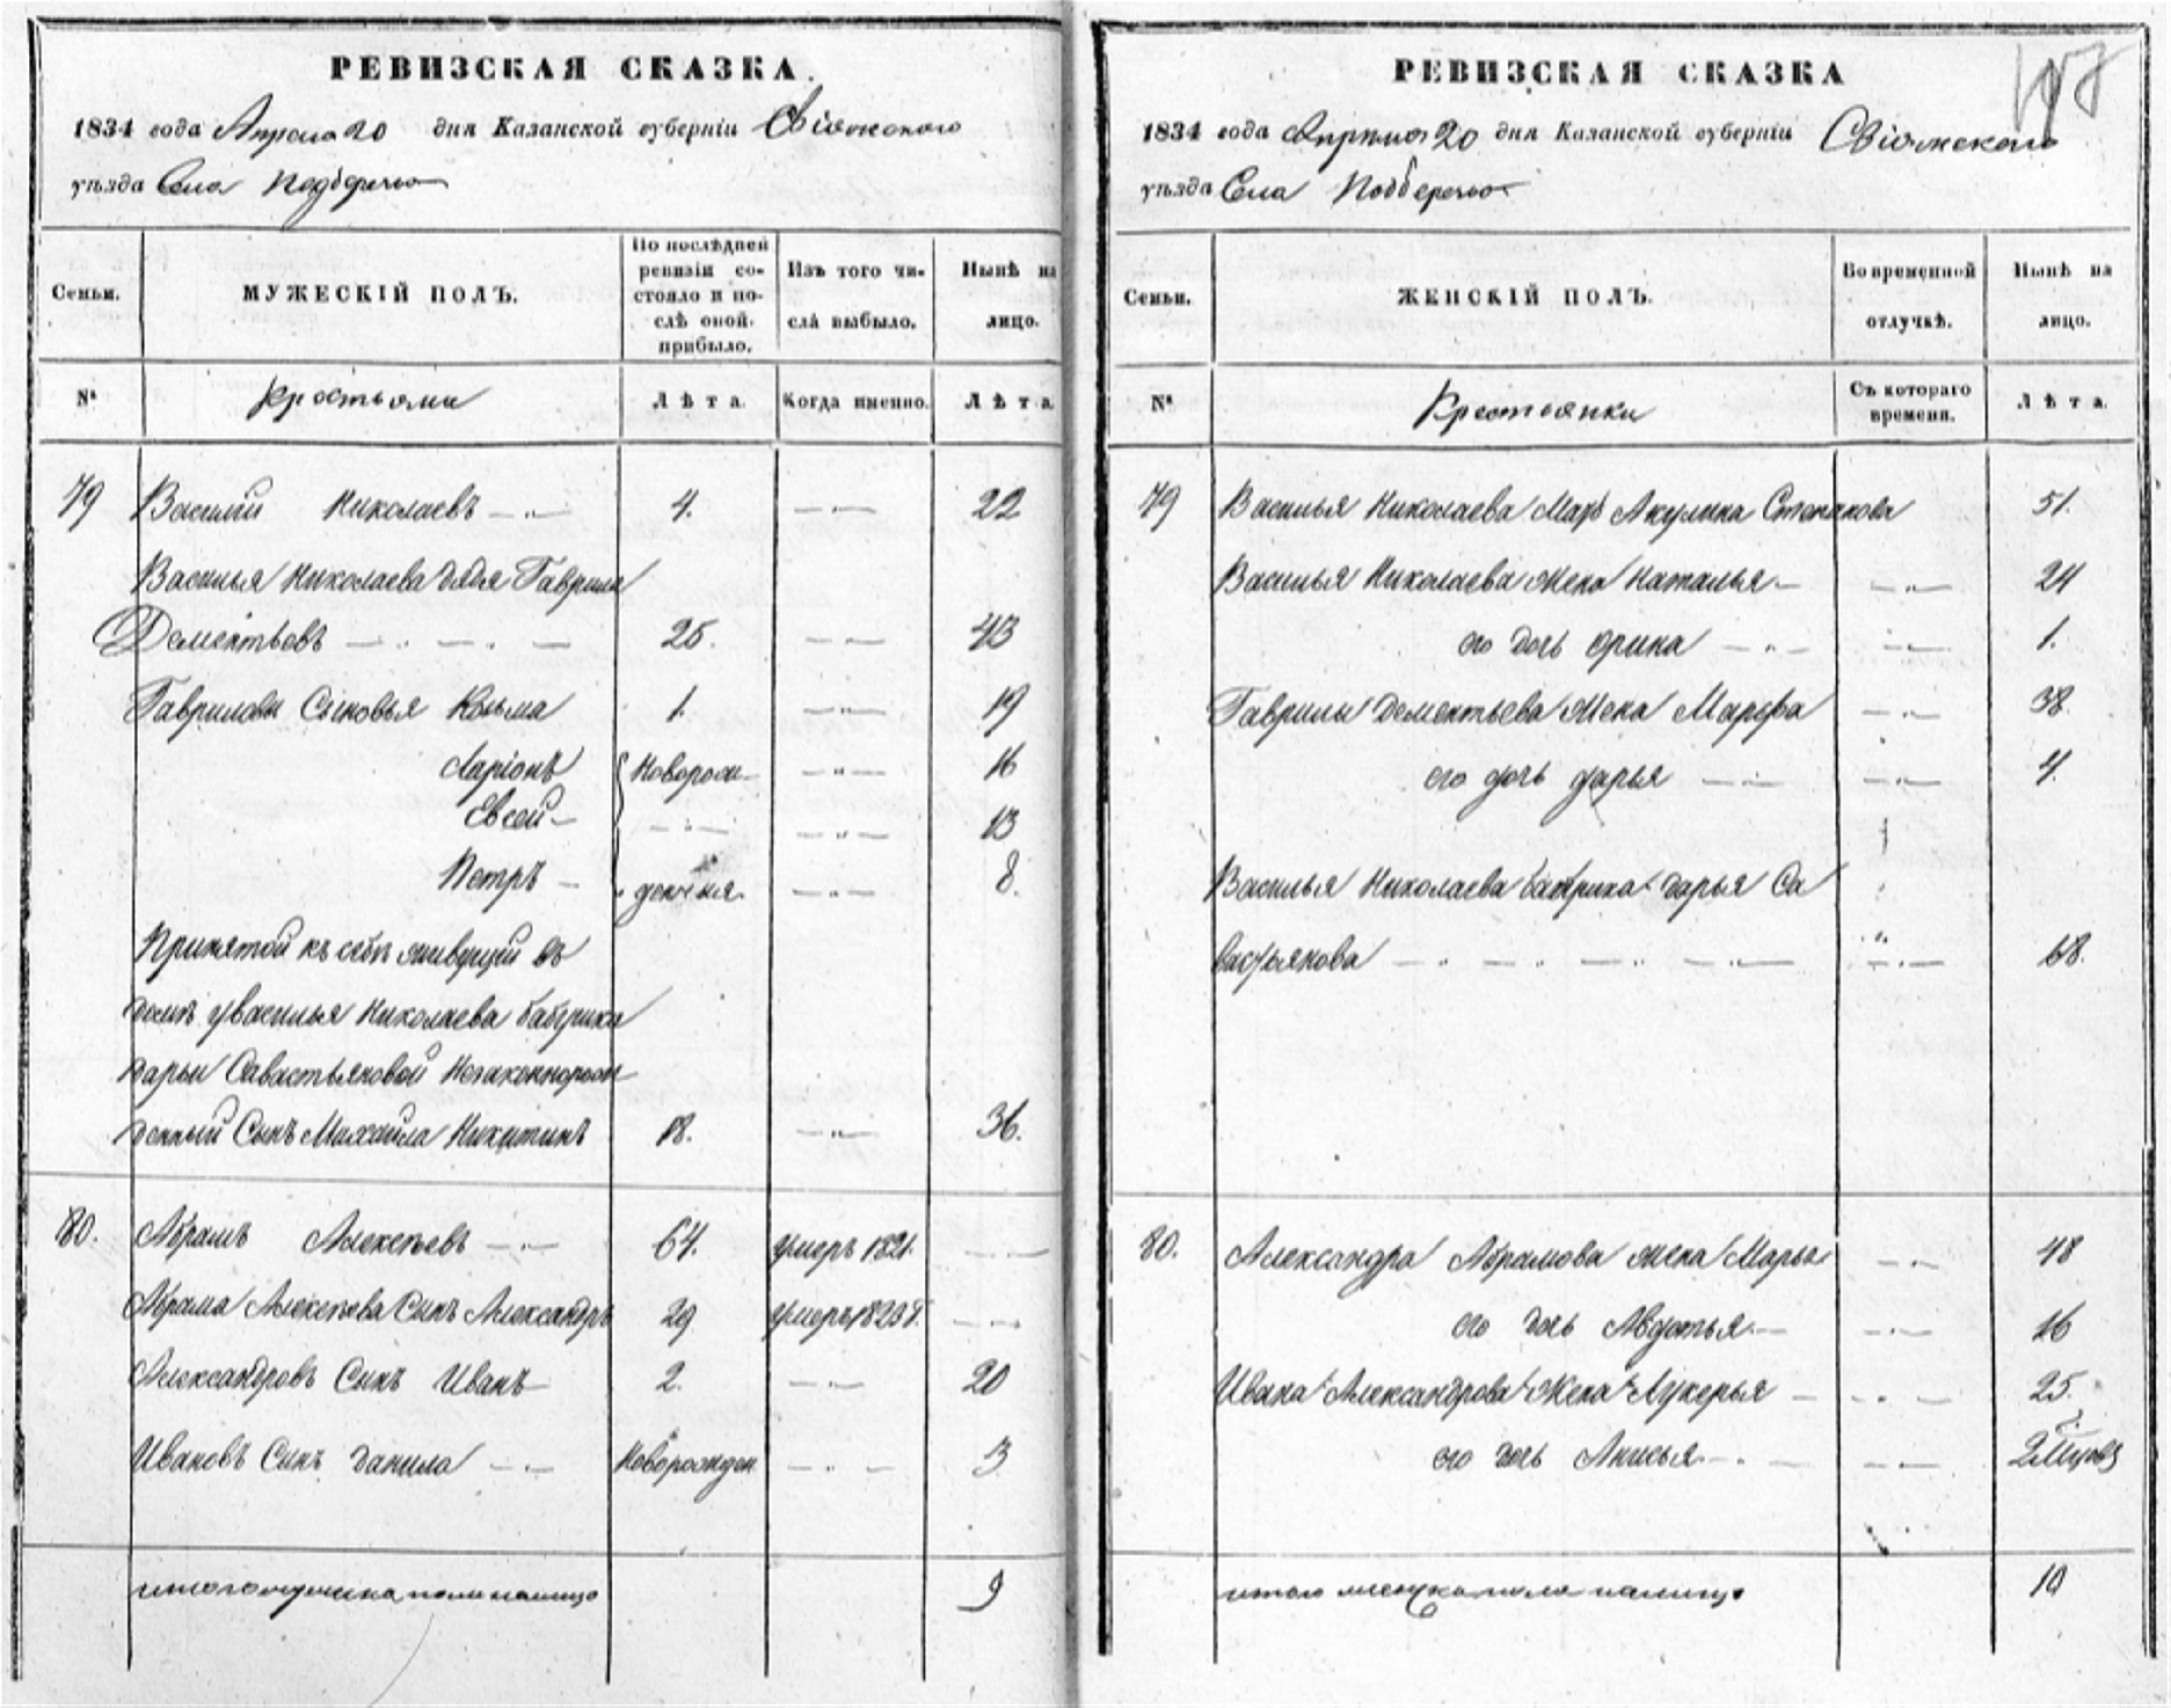 РЕВИЗСКАЯ СКАЗКА.
1834 года Апреля 20 дня Казанской губерніи Свіяжскаго
уѣзда Села Подберезья
Семьи.
МУЖЕСКІЙ ПОЛЪ.
По послѣдней ревизіи состояло и послѣ оной прибыло.
Изъ того числа выбыло.
Нынѣ на лицо.
№
Крестьяне
Лѣта.
Когда именно.
Лѣта
79 Василий Николаевъ 4. 22
Василья Николаева дядя Гаврила
Дементьевъ 25. 43
Гавриловы Сыновья Козьма 1. 19
Ларіонъ Новорож 16
Евсей 13
Петръ денныя. 8.
Принятой къ себѣ живущей въ
домѣ у Василья Николаева бабушки
дарьи Савастьяновой Незаконнорож
денный Сынъ Михайла Никитинъ 18. 36.
80. Абрамъ Алексѣевъ 64. умеръ 1821.
Абрама Алексѣева Сынъ Александръ 29 умеръ 1823 г.
Александровъ Сынъ Иванъ 2. 20
Ивановъ Сынъ данила Новорожден 3
итого мужеска пола налицо 9
РЕВИЗСКАЯ СКАЗКА
1834 года Апреля 20 дня Казанской губерніи Свіяжскаго
уѣзда Села Подберезья
Семьи.
ЖЕНСКІЙ ПОЛЪ.
Во временной отлучкѣ.
Нынѣ на лицо.
№
Крестьянки
Съ котораго времени.
Лѣта.
79 Василья Николаева Мать Акулина Степанова 51.
Василья Николаева Жена Наталья 24
его дочь Орина 1.
Гаврилы Дементьева Жена Марфа 38.
его дочь дарья 4.
Василья Николаева бабушка дарья Са
вастьянова 68.
80. Александра Абрамова жена Марья 48
его дочь Авдотья 16
Ивана Александрова Жена Лукерья 25.
его дочь Анисья
итого женска пола налицо 10